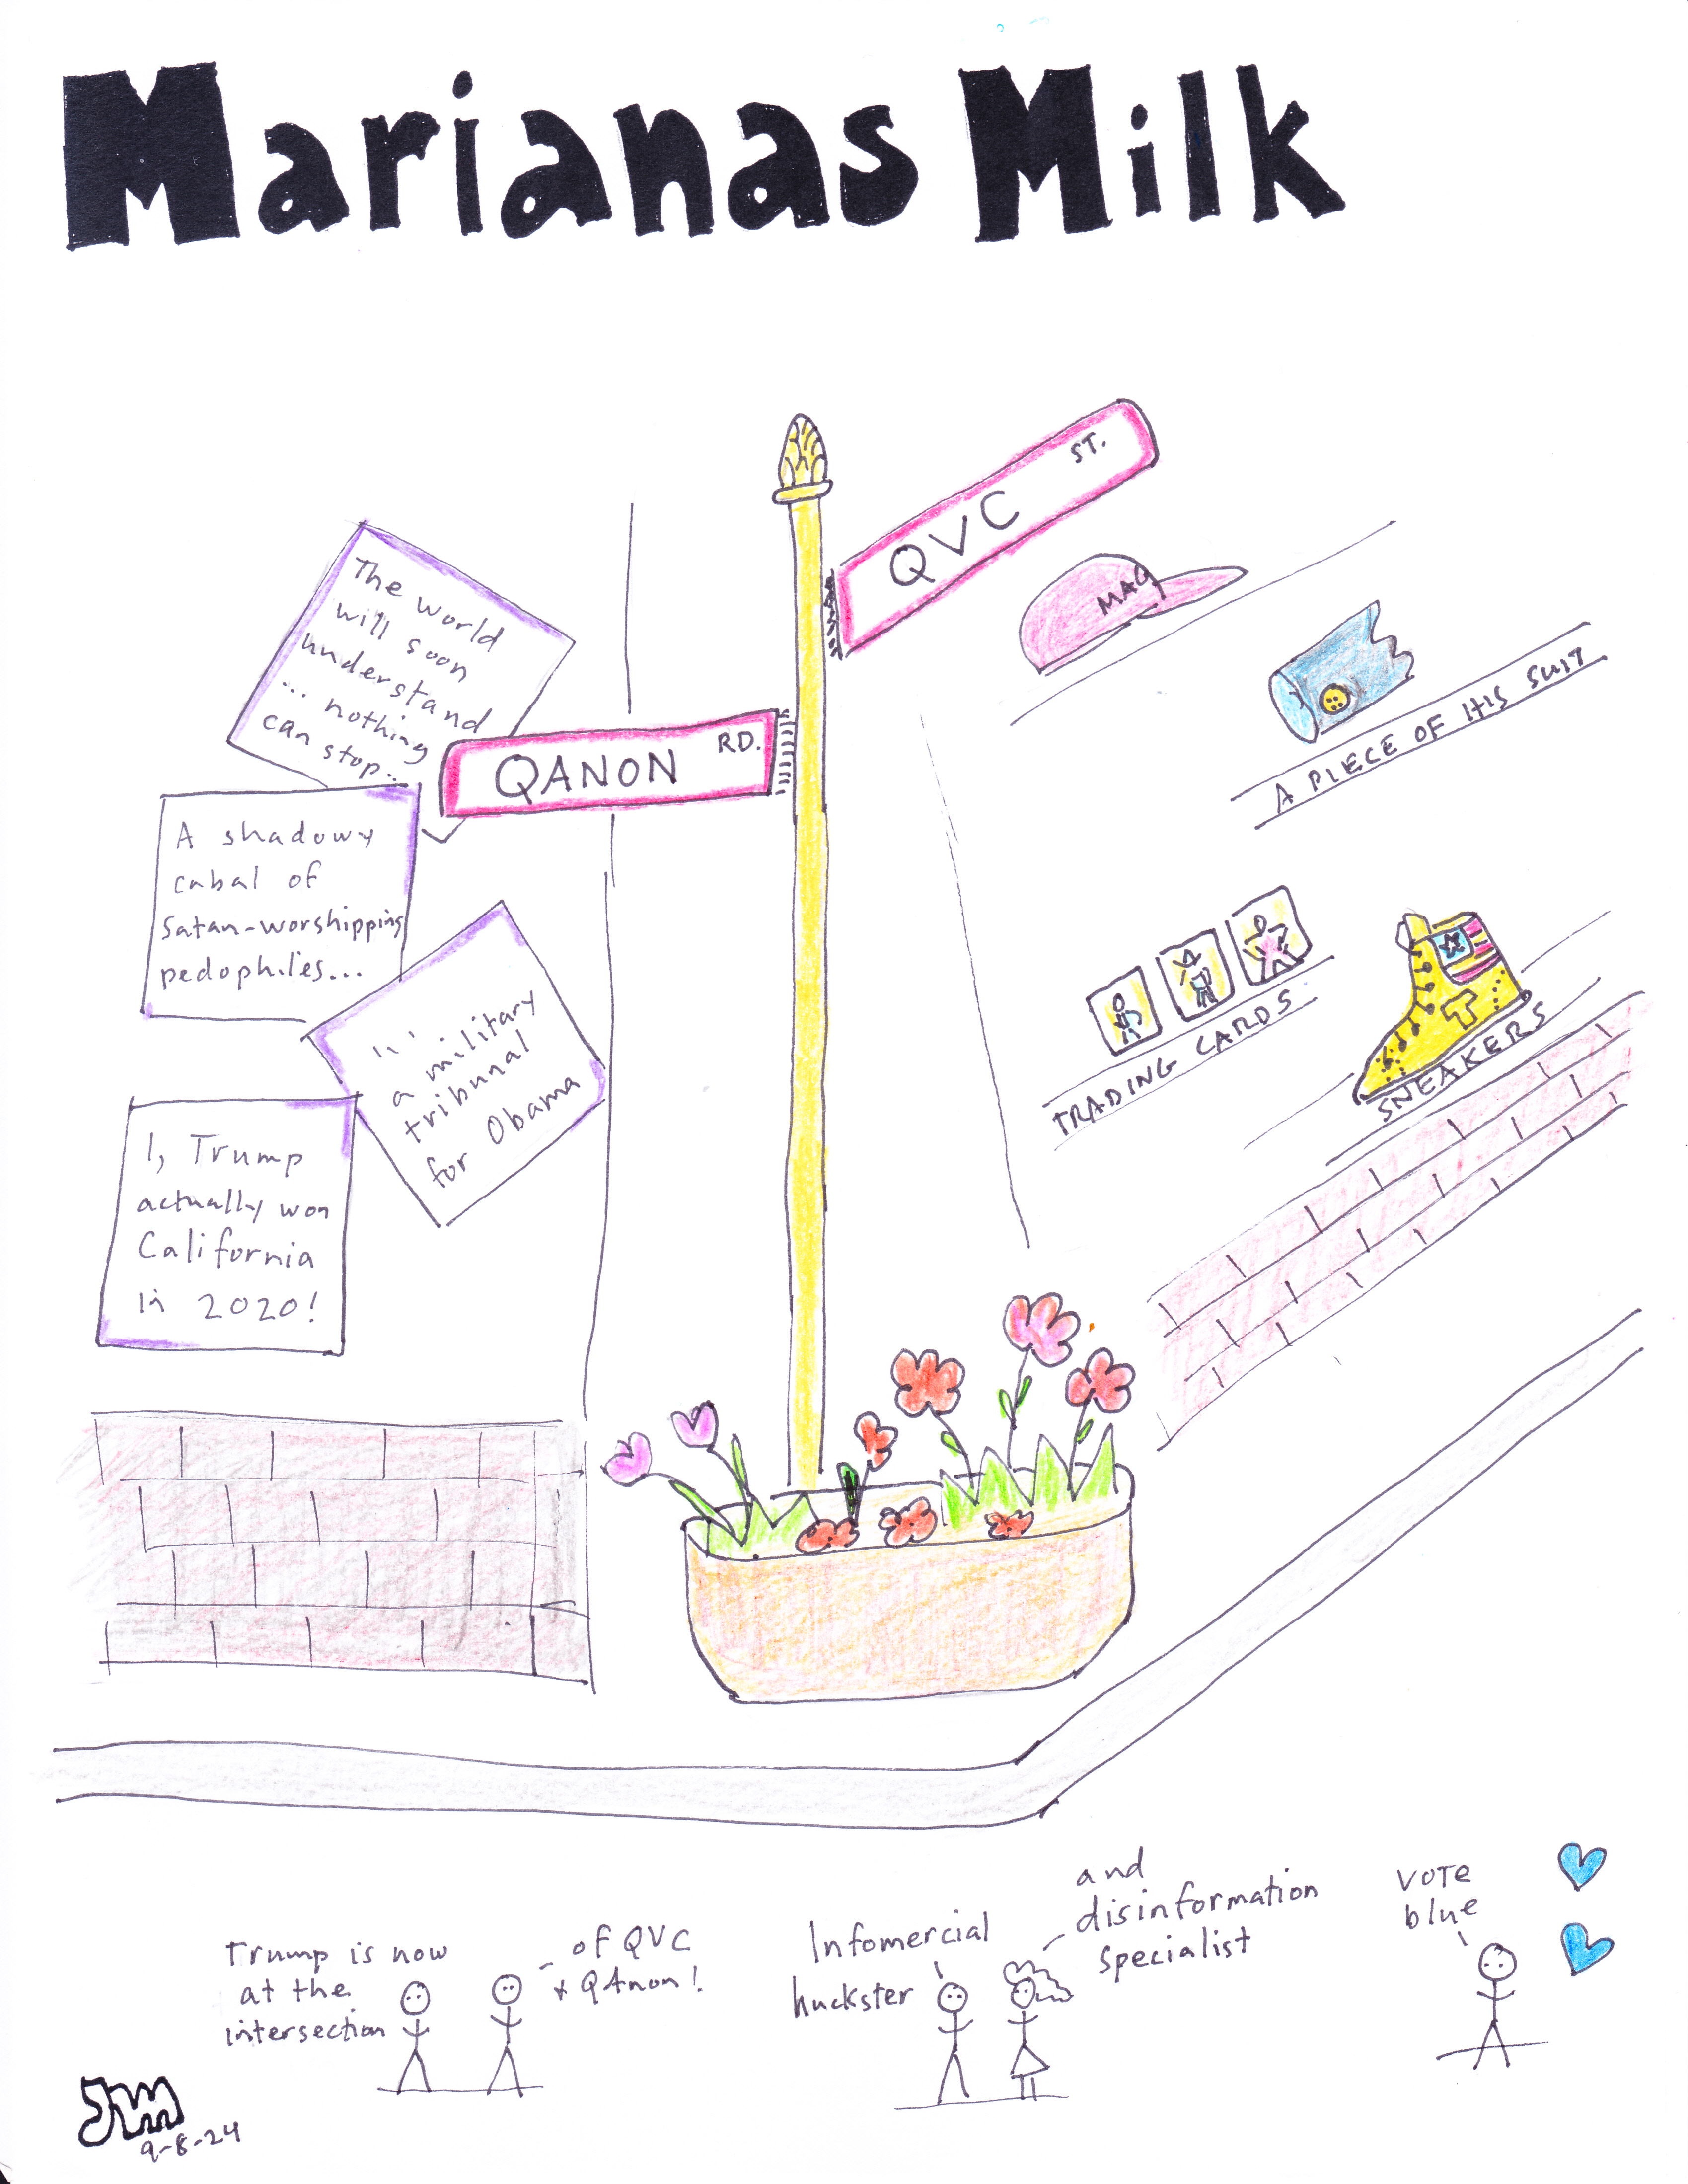 Marianas Milk
QVC ST.
QANON RD.
The world
will soon
understand
... nothing
can stop...
A shadowy
cabal of
Satan-worshipping
pedophiles...
a military
tribunal
for Obama
I, Trump
actually won
California
in 2020!
MAG
A PIECE OF HIS SUIT
TRADING CARDS
T
SNEAKERS
Trump is now
at the
intersection
of QVC
+ QAnon!
Infomercial
huckster
and
disinformation
specialist
VOTE
blue
JM
9-8-24